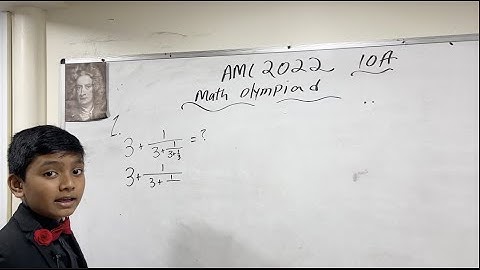 AMC 2022 10A
Math Olympiad
1.
3 + 1/(3 + 1/(3 + 1/3)) = ?
3 + 1/(3 + 1/